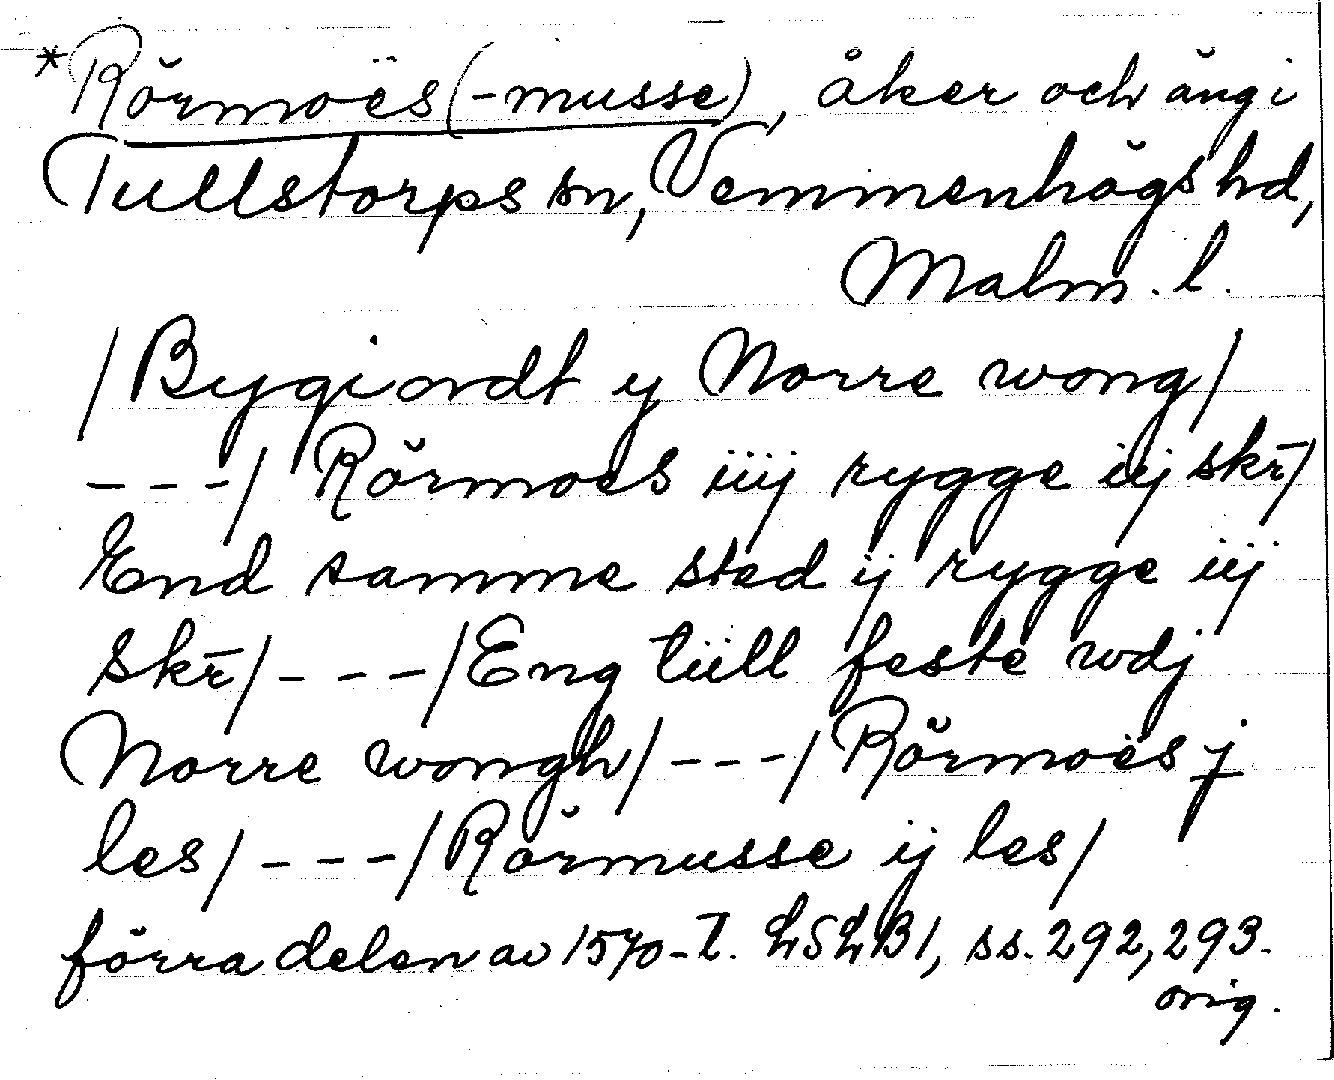 *Rörmoës (-musse), åker och äng i
Tullstorps sn, Vemmenhögs hd,
Malm. l.
/Bygiordt y Norre wong/
---/ Rörmoes iiij rygge iij skr̄/
End samme sted ij rygge iij
skr̄/---/Eng tiill feste wdj
Norre wongh/---/Rörmoës j
les/---/Rörmusse ij les/
förra delen av 1570-t. LSLB1, ss. 292, 293.
orig.